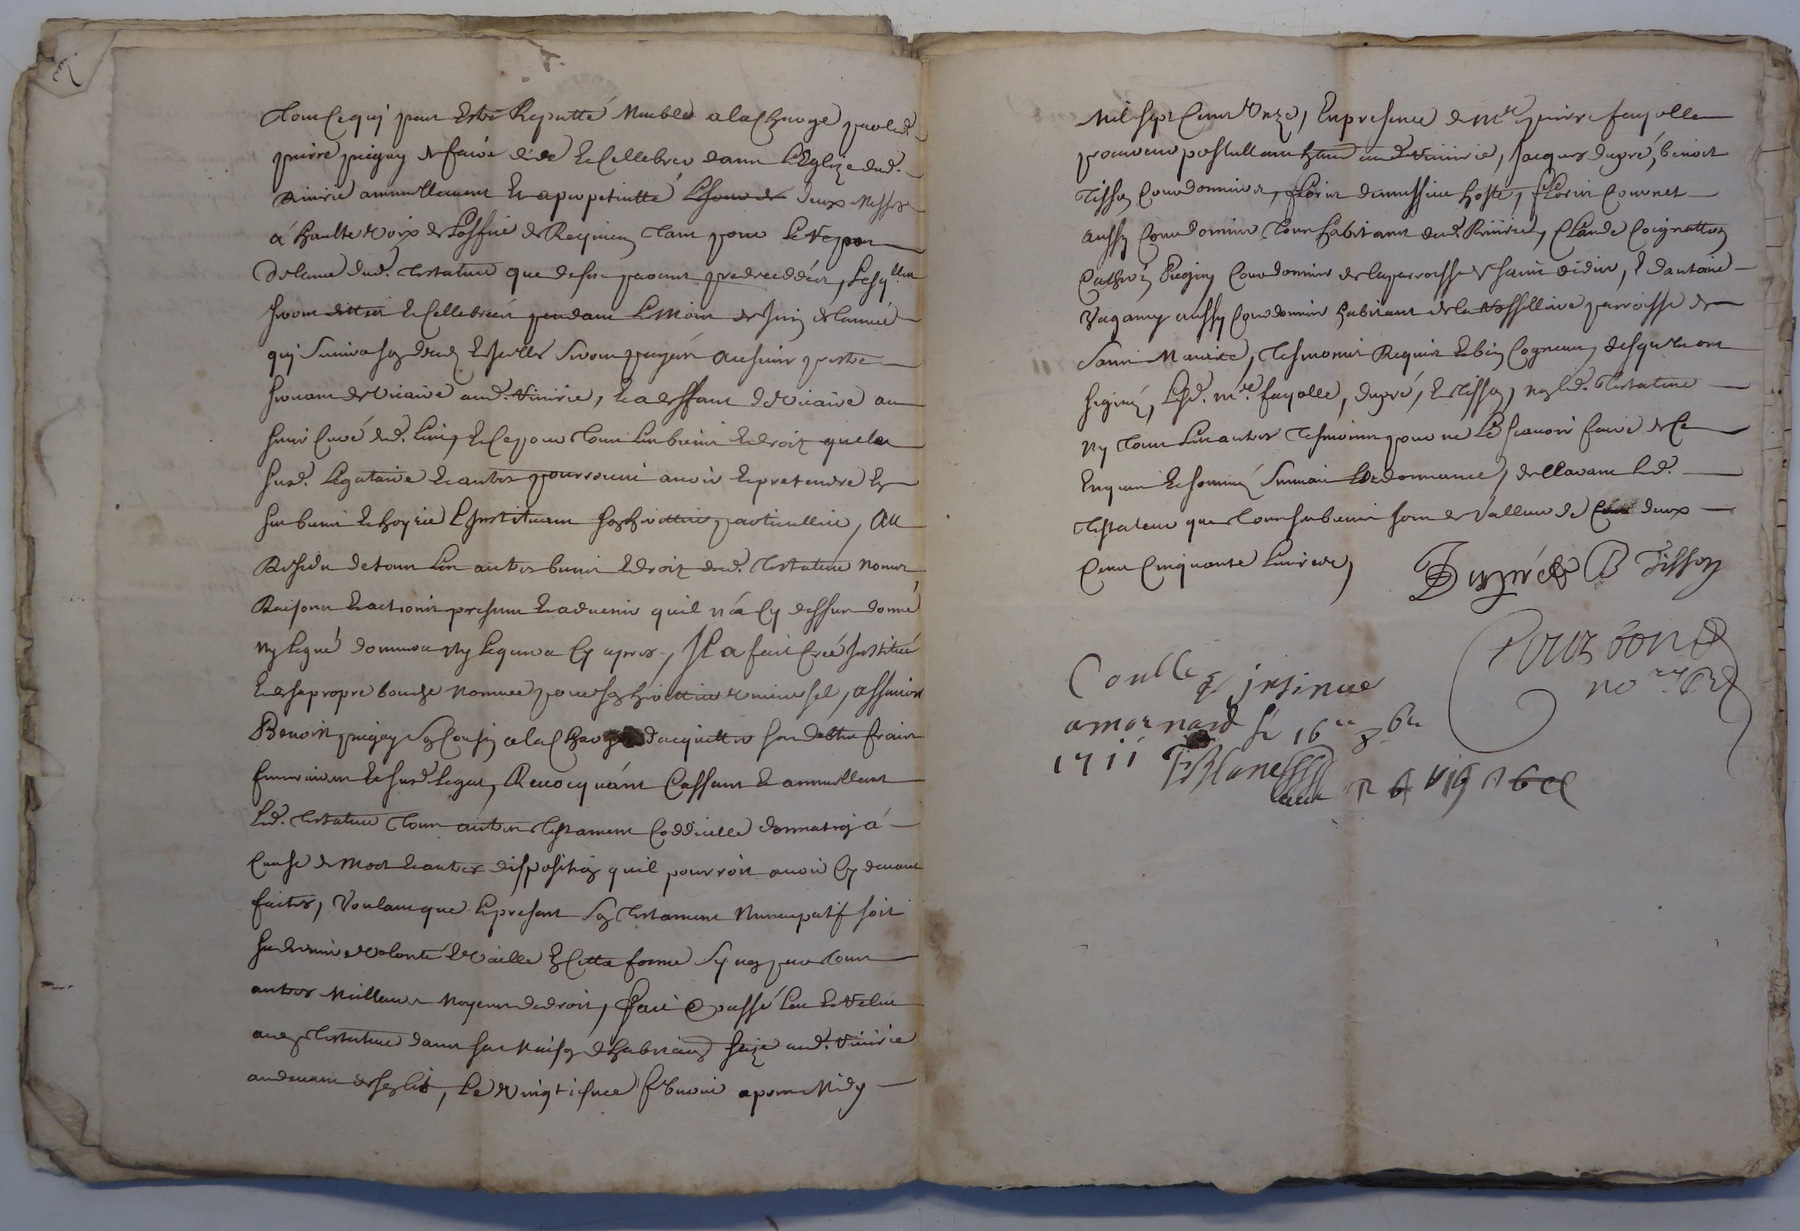 Tout ce qui peut Estre Reputté Meuble a la Charge par led.
pierre pigay de faire dire & Cellebrer dans l'Eglize dud.
Rivirie annuellement Et a perpetuitté deux Messes
á haulte Voix de Loffice de Requiem tant pour le repos
de lame dud. testateur que de ses parens predeceddés, lesq.lles
seront dittes & Cellebrées pendant le Mois de Juin de lannée
qui suivra son deced, Et seront payées au sieur prestre
servant de Vicaire aud. Rivirie, & a deffaut de Vicaire au
sieur Curé dud. lieu, & Ce pour tous les biens & droitz que les
susd. legataire & autres pourroient avoir & pretendre En
ses biens & hoyrie les Instituant ses heritiers particulliers, Au
Residu de tous les autres biens & droitz dud. testateur noms
Raisons & actions presens & advenir quil n'a Cy dessus donné
ny legué donnera ny leguera Cy apres, Il a fait Creé Institué
& de sa propre bouche nommé pour son heritier universel,
Benoit pigay son Cousin a la Charge dacquitter ses debtes frais
funeraires & susd. legat, Revocquant Cassant & annullant
led. testateur tous autres testament Coddicille donnation á
Cause de Mort & autres disposition quil pourroit avoir Cy devant
faites, Voulant que le present son testament Nuncupatif soit
sa derniere volonté & vaille En Cette forme sy non par tous
autres Meilleurs Moyens de droit, fait & passé leu & relu
aud. testateur dans sa Maison dhabitation size aud. Rivirie
au devant de son lit, le Vingtiesme febvrier apres Midy
Mil sept Cent Onze, En presence de Me pierre fayolle
procureur postullant aud. Rivirie, Jacques dupré, benoit
Tisson Cordonnier, florin dumessieu hoste, florin Couvret
aussy Cordonnier tous habitans dud. Rivirie, Claude Coignatton
Cordonnier de la parroisse de Saint didier, & dantoine
Vaganay aussy Cordonnier habitant de la parroisse de
Saint Maurice, tesmoins Requis & bien Cogneus, desquels ont
signé, lesd. me. fayolle, dupré, & tisson, non led. testateur
ny tous les autres tesmoins pour ne le scavoir faire de Ce
Enquis & sommés suivant lordonnance, declarant led.
testateur que tous ses biens sont de Valleur de deux
Cens Cinquante livres,
Dupré B Tisson
Coullé & jnsinué
a mornand le 16me 8bre
1711